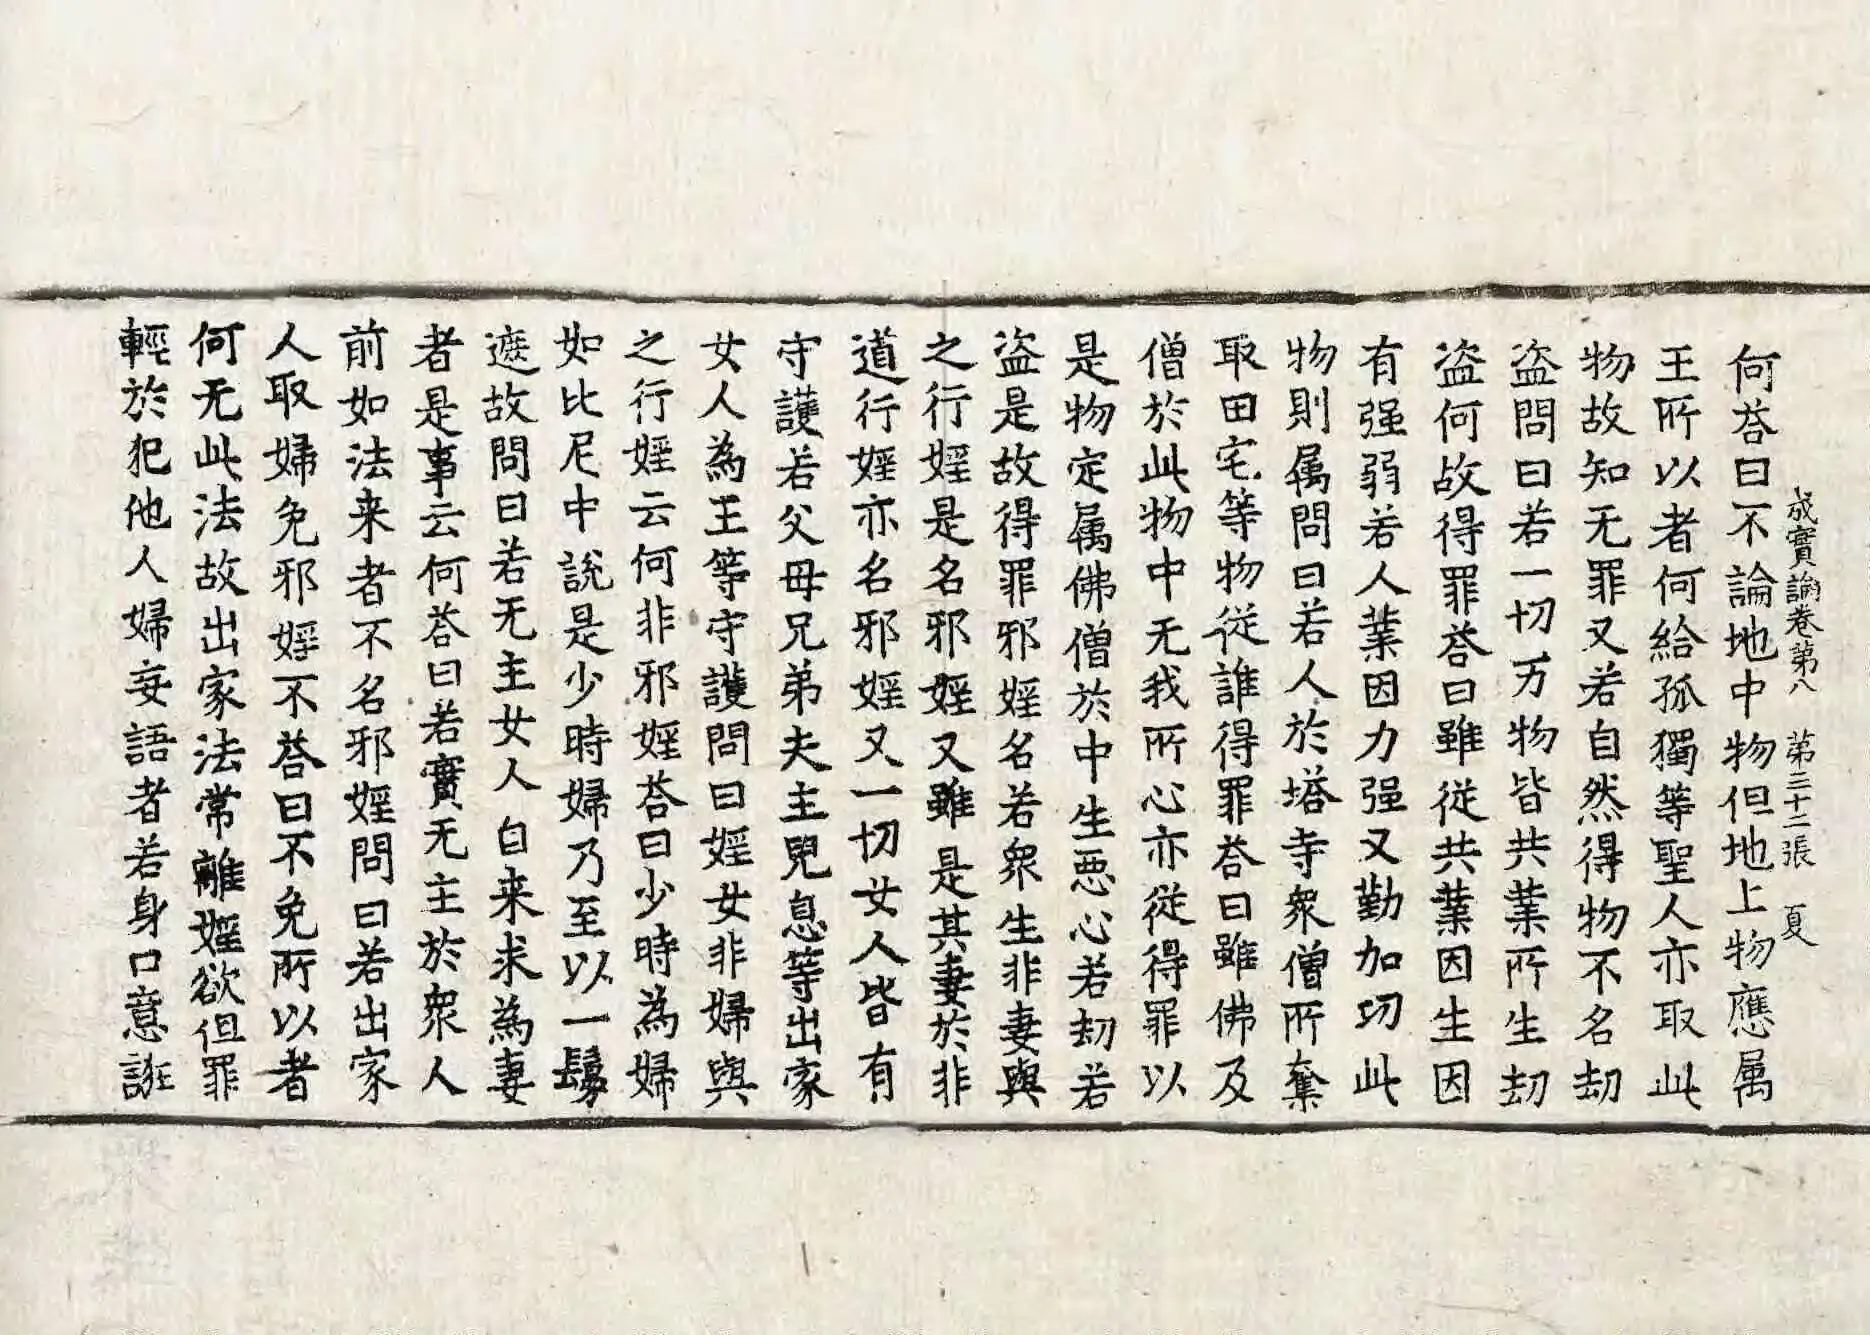 成實論卷第八　第三十二張　夏
何荅曰不論地中物但地上物應属
王所以者何給孤獨等聖人亦取此
物故知无罪又若自然得物不名刼
盗問曰若一切万物皆共業所生刼
盗何故得罪荅曰雖從共業因生因
有强弱若人業因力强又勤加功此
物則属問曰若人於塔寺衆僧所奪
取田宅等物從誰得罪荅曰雖佛及
僧於此物中无我所心亦從得罪以
是物定属佛僧於中生惡心若刼若
盗是故得罪邪婬名若衆生非妻與
之行婬是名邪婬又雖是其妻於非
道行婬亦名邪婬又一切女人皆有
守護若父母兄弟夫主兒息等出家
女人為王等守護問曰婬女非婦與
之行婬云何非邪婬荅曰少時為婦
如比尼中說是少時婦乃至以一鬘
遮故問曰若无主女人自来求為妻
者是事云何荅曰若實无主於衆人
前如法来者不名邪婬問曰若出家
人取婦免邪婬不荅曰不免所以者
何无此法故出家法常離婬欲但罪
輕於犯他人婦妄語者若身口意誑